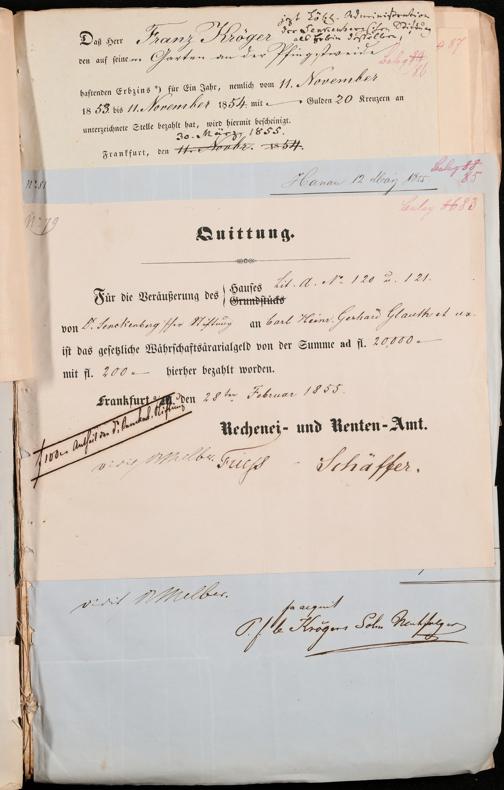 Daß Herr Franz Kröger jetzt Löbl. Administration
der Senckenbergischen Stiftung
als Erbin desselben,
den auf seinem Garten an der Pfingstweide
haftenden Erbzins für Ein Jahr, nemlich vom 11. November
1853. bis 11. November 1854. mit — Gulden 20 Kreuzern an
unterzeichnete Stelle bezahlt hat, wird hiermit bescheinigt.
30. März. 1855.
Frankfurt, den 11. Novbr. 1854.
87
Beleg 84
86
Hanau 12 März 1855
Beleg 88
85
No 79
Beleg 83
Quittung.
Für die Veräußerung des Hauses Lit. A. No 120 u. 121.
Grundstücks
von Dr. Senckenberg'sche Stiftung an Carl Heinr. Gerhard Glauth et ux.
ist das gesetzliche Währschaftsärarialgeld von der Summe ad fl. 20000 —
mit fl. 200 — hierher bezahlt worden.
Frankfurt a/M. den 28ten Februar 1855.
f 100 — Antheil der Dr. Senckenb. Stiftung
Rechenei- und Renten-Amt.
vidit Melber. Fuchs Schäffer.
vidit Melber.
pr acquit
Krögers Sohn Nachfolger